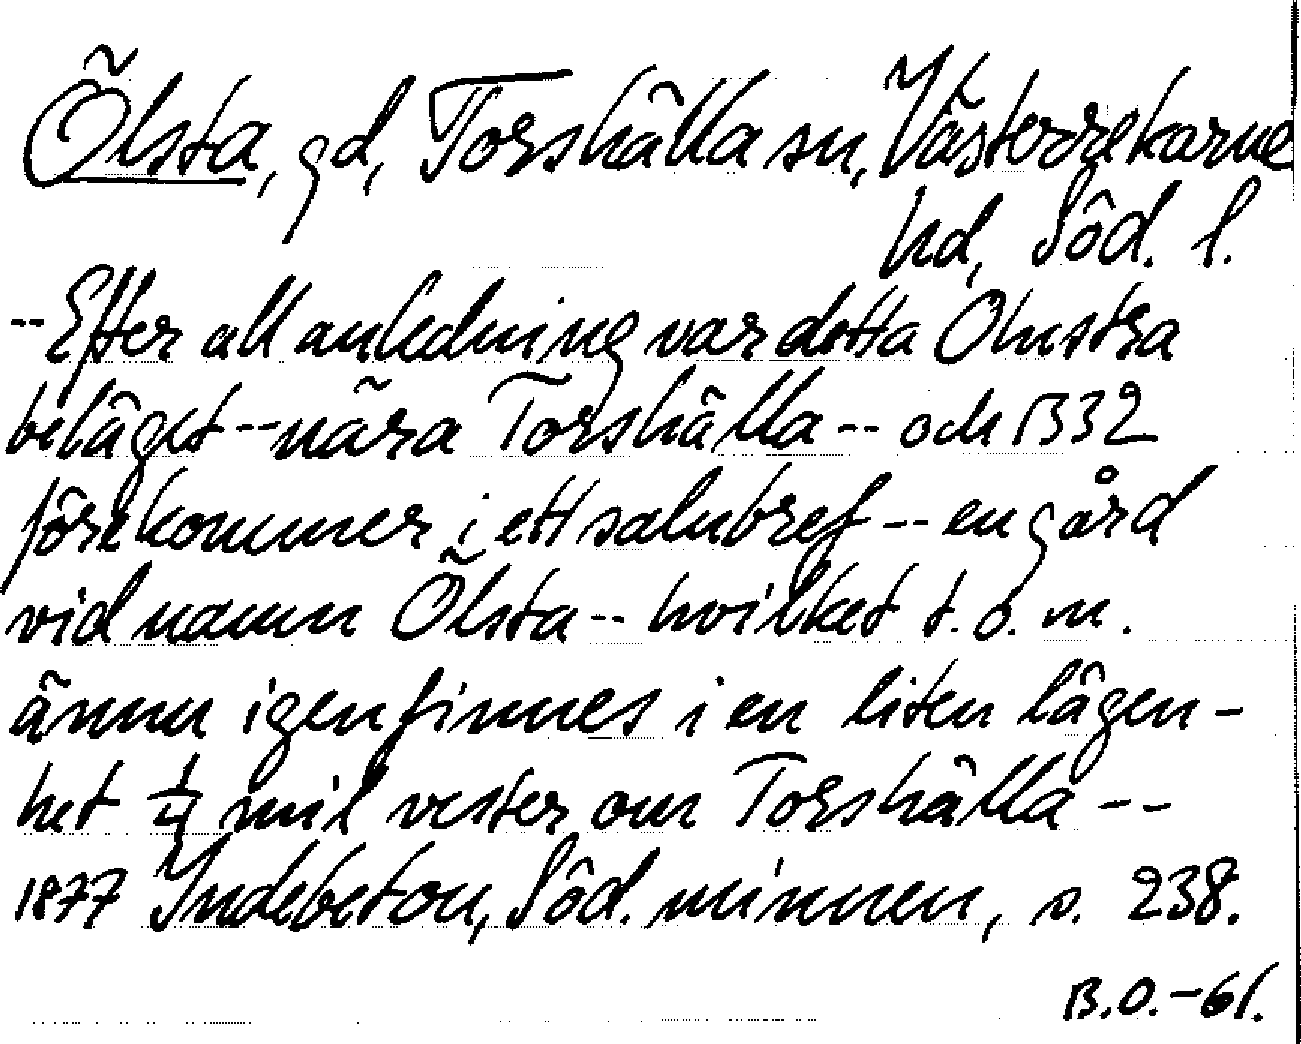 Ölsta, gd, Torshälla sn, Västerrekarne
hd, Söd. l.
--Efter all anledning var detta Olustra
beläget--nära Torshälla -- och 1332
förekommer i ett salubref -- en gård
vid namn Ölsta -- hvilket t. o. m.
ännu igenfinnes i en liten lägen-
het 1/4 mil vester om Torshälla --
1877 Indebetou, Söd. minnen, s. 238.
B.O.-61.